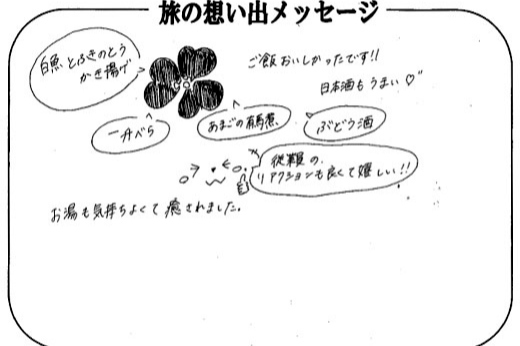 旅の想い出メッセージ
白魚とふきのとう
かき揚げ
ご飯おいしかったです!!
日本酒もうまい♡
一升べら
あまごの有馬煮
ぶどう酒
従業員の
リアクションも良くて嬉しい!!
お湯も気持ちよくて癒されました。